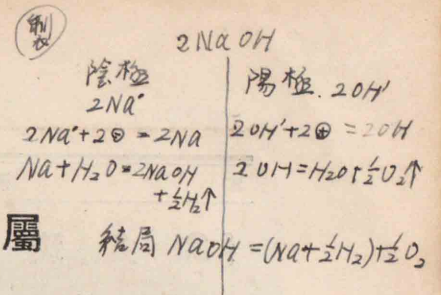 製
2NaOH
陰極
2Na˙
2Na˙+2⊖=2Na
Na+H₂O=2NaOH
+½H₂↑
陽極. 2OH'
2OH'+2⊕=2OH
2OH=H₂O+½O₂↑
屬
結局 NaOH=(Na+½H₂)+½O₂